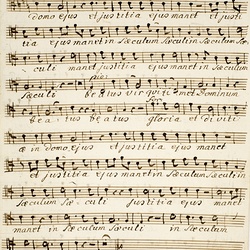 domo ejus et justitia ejus manet et justi
tia ejus manet in sæculum sæculi in sæculum sæ
culi manet justitia ejus manet in sæculum
sæculi beatus vir qui timet Dominum
beatus beatus gloria et diviti
æ in domo ejus et justitia ejus manet
et justitia ejus manet in sæculum sæculi in
sæculum sæculi justitia ejus manet
manet in sæculum sæculi in sæculum